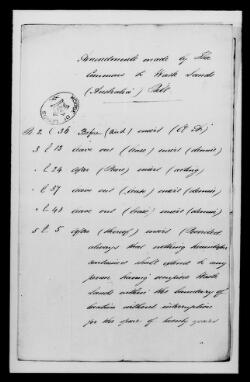 Amendments made by The
Commons to Waste Lands
(Australia) Bill
2 l 36 Before (and) insert
3 l 13 leave out (lease) insert (demise)
l 24 after (Place) insert
l 37 leave out (lease) insert (demise)
l 43 leave out (lease) insert (demise)
5 l 5 after (thereof) insert (Provided
always that nothing hereinbefore
contained shall extend to any
person having occupied Waste
Lands within the boundary of
location without interruption
for the space of twenty years